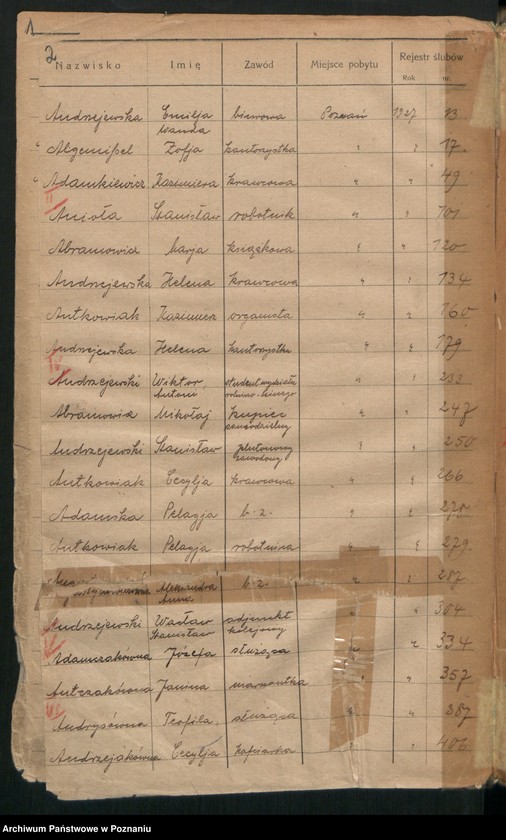 1
2
Nazwisko Imię Zawód Miejsce pobytu Rejestr ślubów
Rok nr.
Andrzejewska Emilja Wanda biurowa Poznań 1927 13
Algemißel Zofja kantorzystka " " 17
Adamkiewicz Kazimiera krawcowa " " 49
Anioła Stanisław robotnik " " 101
Abramowicz Marja książkowa " " 120
Andrzejewska Helena krawcowa " " 134
Antkowiak Kazimierz organista " " 160
Andrzejewska Helena kantorzystka " " 179
Andrzejewski Wiktor Antoni student wydziału rolniczo-leśnego " " 233
Abramowicz Mikołaj kupiec samodzielny " " 247
Andrzejewski Stanisław plutonowy zawodowy " " 250
Antkowiak Cecylja krawcowa " " 266
Adamska Pelagja b.z. " " 270
Antkowiak Pelagja robotnica " " 279
Aleksandra Anna b.z. " " 287
Andrzejewski Wacław Stanisław adjunkt kolejowy " " 304
Adamczakówna Józefa służąca " " 334
Antczakówna Janina " " 357
Andrysówna Teofila służąca " " 387
Andrzejakówna Cecylja hafciarka " " 406
Archiwum Państwowe w Poznaniu